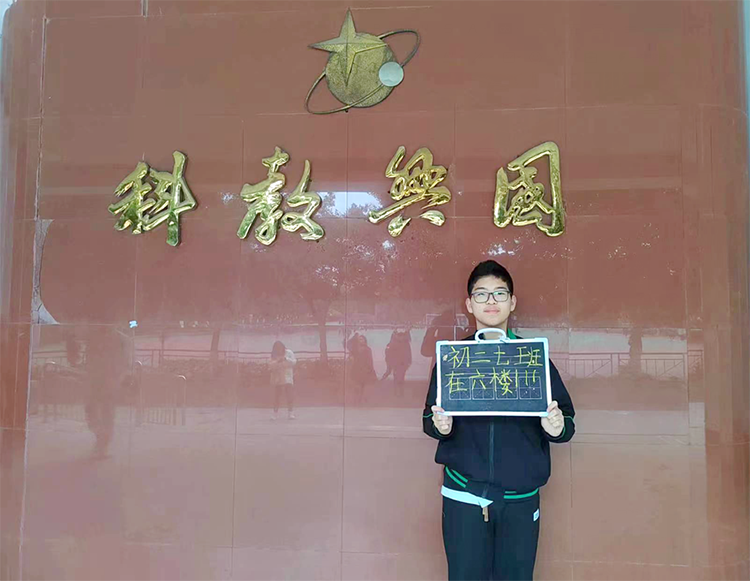 科教兴国
初二七班
在六楼!!!